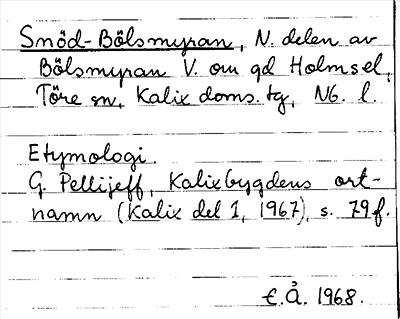 Snöd-Bölsmyran, N. delen av
Bölsmyran V. om gd Holmsel,
Töre sn, Kalix doms. tg, Nb. l.
Etymologi.
G. Pellijeff, Kalixbygdens ort-
namn (Kalix del 1, 1967), s. 79f.
E.Å. 1968.